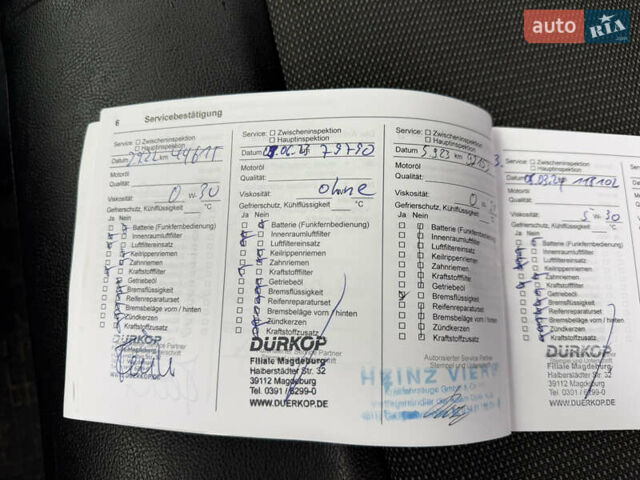 auto RIA.com
6 Servicebestätigung
Service: Zwischeninspektion
Hauptinspektion
Datum km 44611
Motoröl
Qualität:
Viskosität: 0 W-30
Gefrierschutz, Kühlflüssigkeit °C
Ja Nein
Batterie (Funkfernbedienung)
Innenraumluftfilter
Luftfiltereinsatz
Keilrippenriemen
Zahnriemen
Kraftstofffilter
Getriebeöl
Bremsflüssigkeit
Reifenreparaturset
Bremsbeläge vorn / hinten
Zündkerzen
Kraftstoffzusatz
DÜRKOP
Service: Zwischeninspektion
Hauptinspektion
Datum 79790
Motoröl
Qualität:
Viskosität: ohne
Gefrierschutz, Kühlflüssigkeit °C
Ja Nein
Batterie (Funkfernbedienung)
Innenraumluftfilter
Luftfiltereinsatz
Keilrippenriemen
Zahnriemen
Kraftstofffilter
Getriebeöl
Bremsflüssigkeit
Reifenreparaturset
Bremsbeläge vorn / hinten
Zündkerzen
Kraftstoffzusatz
DÜRKOP
Filiale Magdeburg
Halberstädter Str. 32
39112 Magdeburg
Tel. 0391 / 6299-0
WWW.DUERKOP.DE
Service: Zwischeninspektion
Hauptinspektion
Datum 5.923 km
Motoröl
Qualität:
Viskosität:
Gefrierschutz, Kühlflüssigkeit °C
Ja Nein
Batterie (Funkfernbedienung)
Innenraumluftfilter
Luftfiltereinsatz
Keilrippenriemen
Zahnriemen
Kraftstofffilter
Getriebeöl
Bremsflüssigkeit
Reifenreparaturset
Bremsbeläge vorn / hinten
Zündkerzen
Kraftstoffzusatz
Autorisierter Service Partner
Stempel und Unterschrift
HEINZ
Service: Zwischeninspektion
Hauptinspektion
Datum 118102
Motoröl
Qualität:
Viskosität: 5 W-30
Gefrierschutz, Kühlflüssigkeit
Ja Nein
Batterie (Funkfernbedienung)
Innenraumluftfilter
Luftfiltereinsatz
Keilrippenriemen
Zahnriemen
Kraftstofffilter
Getriebeöl
Bremsflüssigkeit
Reifenreparaturset
Bremsbeläge vorn / hinten
Zündkerzen
Kraftstoffzusatz
DÜRKOP
Filiale Magdeburg
Halberstädter Str. 32
39112 Magdeburg
Tel. 0391 / 6299-0
WWW.DUERKOP.DE